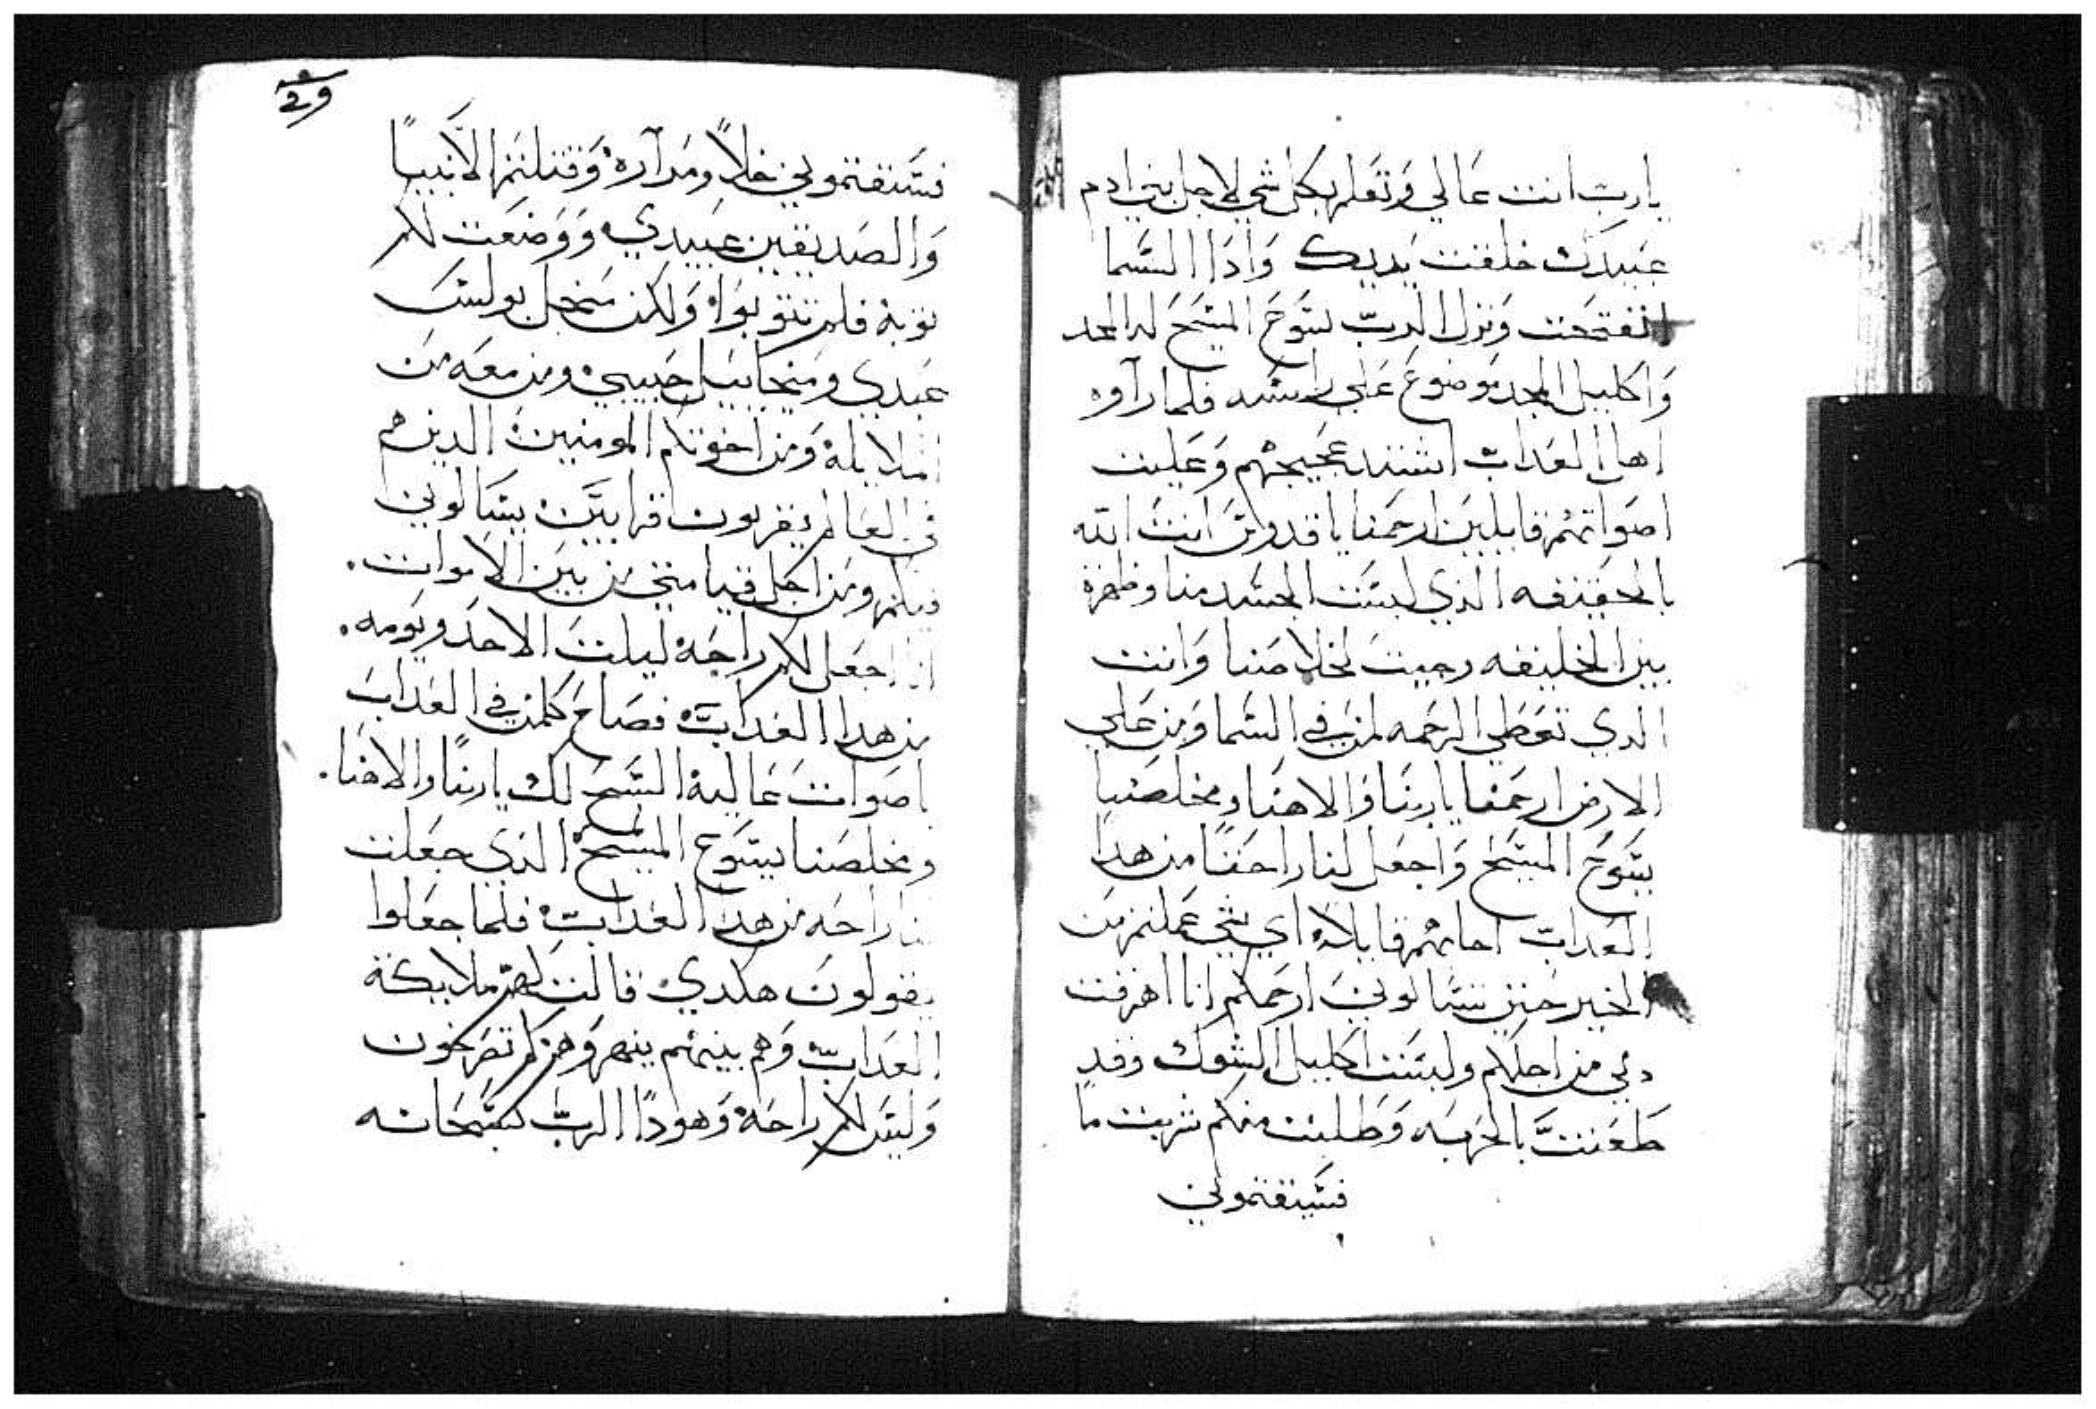 يارب انت عالي وتعلم بكل شي لاجل بني ادم
عبيدك خلقت يديك وادا السما
انفتحت ونزل الرب يسوع المسيح له المجد
واكليل المجد موضوع علي راسه فلما راوه
اهل العداب اشتد عجيجهم وعليت
اصواتهم قايلين ارحمنا يا قدوس انت الله
بالحقيقه الذي لبست الجسد منا وظهرة
بين الخليقه وجيت لخلاصنا وانت
الدي تعطي الرحمه لمن في السما ومن علي
الارض ارحمنا ياربنا والاهنا ومخلصنا
يسوع المسيح واجعل لنا راحتًا من هدا
العداب اجابهم قايلاً اي شي عملتم من
الخير حتي تسالوني ارحمكم انا اهرقت
دمي من اجلكم ولبست اكليل الشوك وقد
طعنت بالحربه وطلبت منكم شربت ما
فسقيتموني
فسقيتموني خلاً ومرارة وقتلتم الانبيا
والصديقين عبيدي ووضعت لكم
توبة فلم تتوبوا ولكن من اجل بولس
عبدي وميخاييل حبيبي ومن معه من
الملايكة ومن اخوتكم المومنين الدين هم
في العالم يقربون قرابين يسالوني
فيكم ومن اجل قيامتي من بين الاموات.
انا اجعل لكم راحة ليلت الاحد ويومه.
من هدا العداب فصاح كلمن في العداب
باصوات عالية السبح لك ياربنا والاهنا.
ومخلصنا يسوع المسيح الذي جعلت
لنا راحه من هدا العداب فلما جعلوا
يقولون هكدي قالت لهم ملايكة
العداب وهم بينهم ينهروهم كم تصرخون
وليس لكم راحة وهودا الرب سبحانه